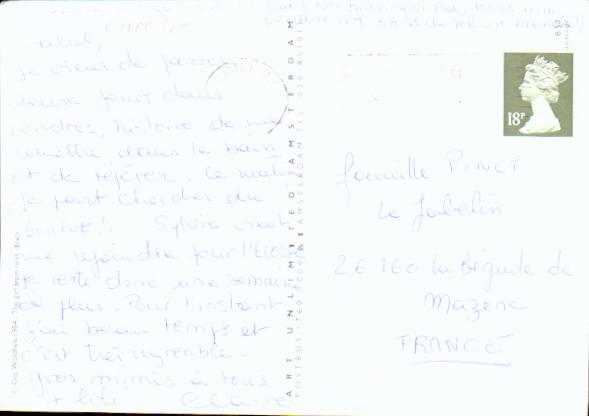 Salut,
je viens de passer
deux jours dans
Londres, histoire de me
remettre dans le bain
et de repérer. Ce matin
je part chercher du
boulot! Sylvie vient
me rejoindre pour l'Ecosse
je reste donc une semaine
de plus. Pour l'instant
j'ai beau temps et
c'est très agréable-
gros mimis à tous
Claire
ART UNLIMITED AMSTERDAM
18P
famille PINET
Le Jabelin
26160 La Bégude de
Mazenc
FRANCE